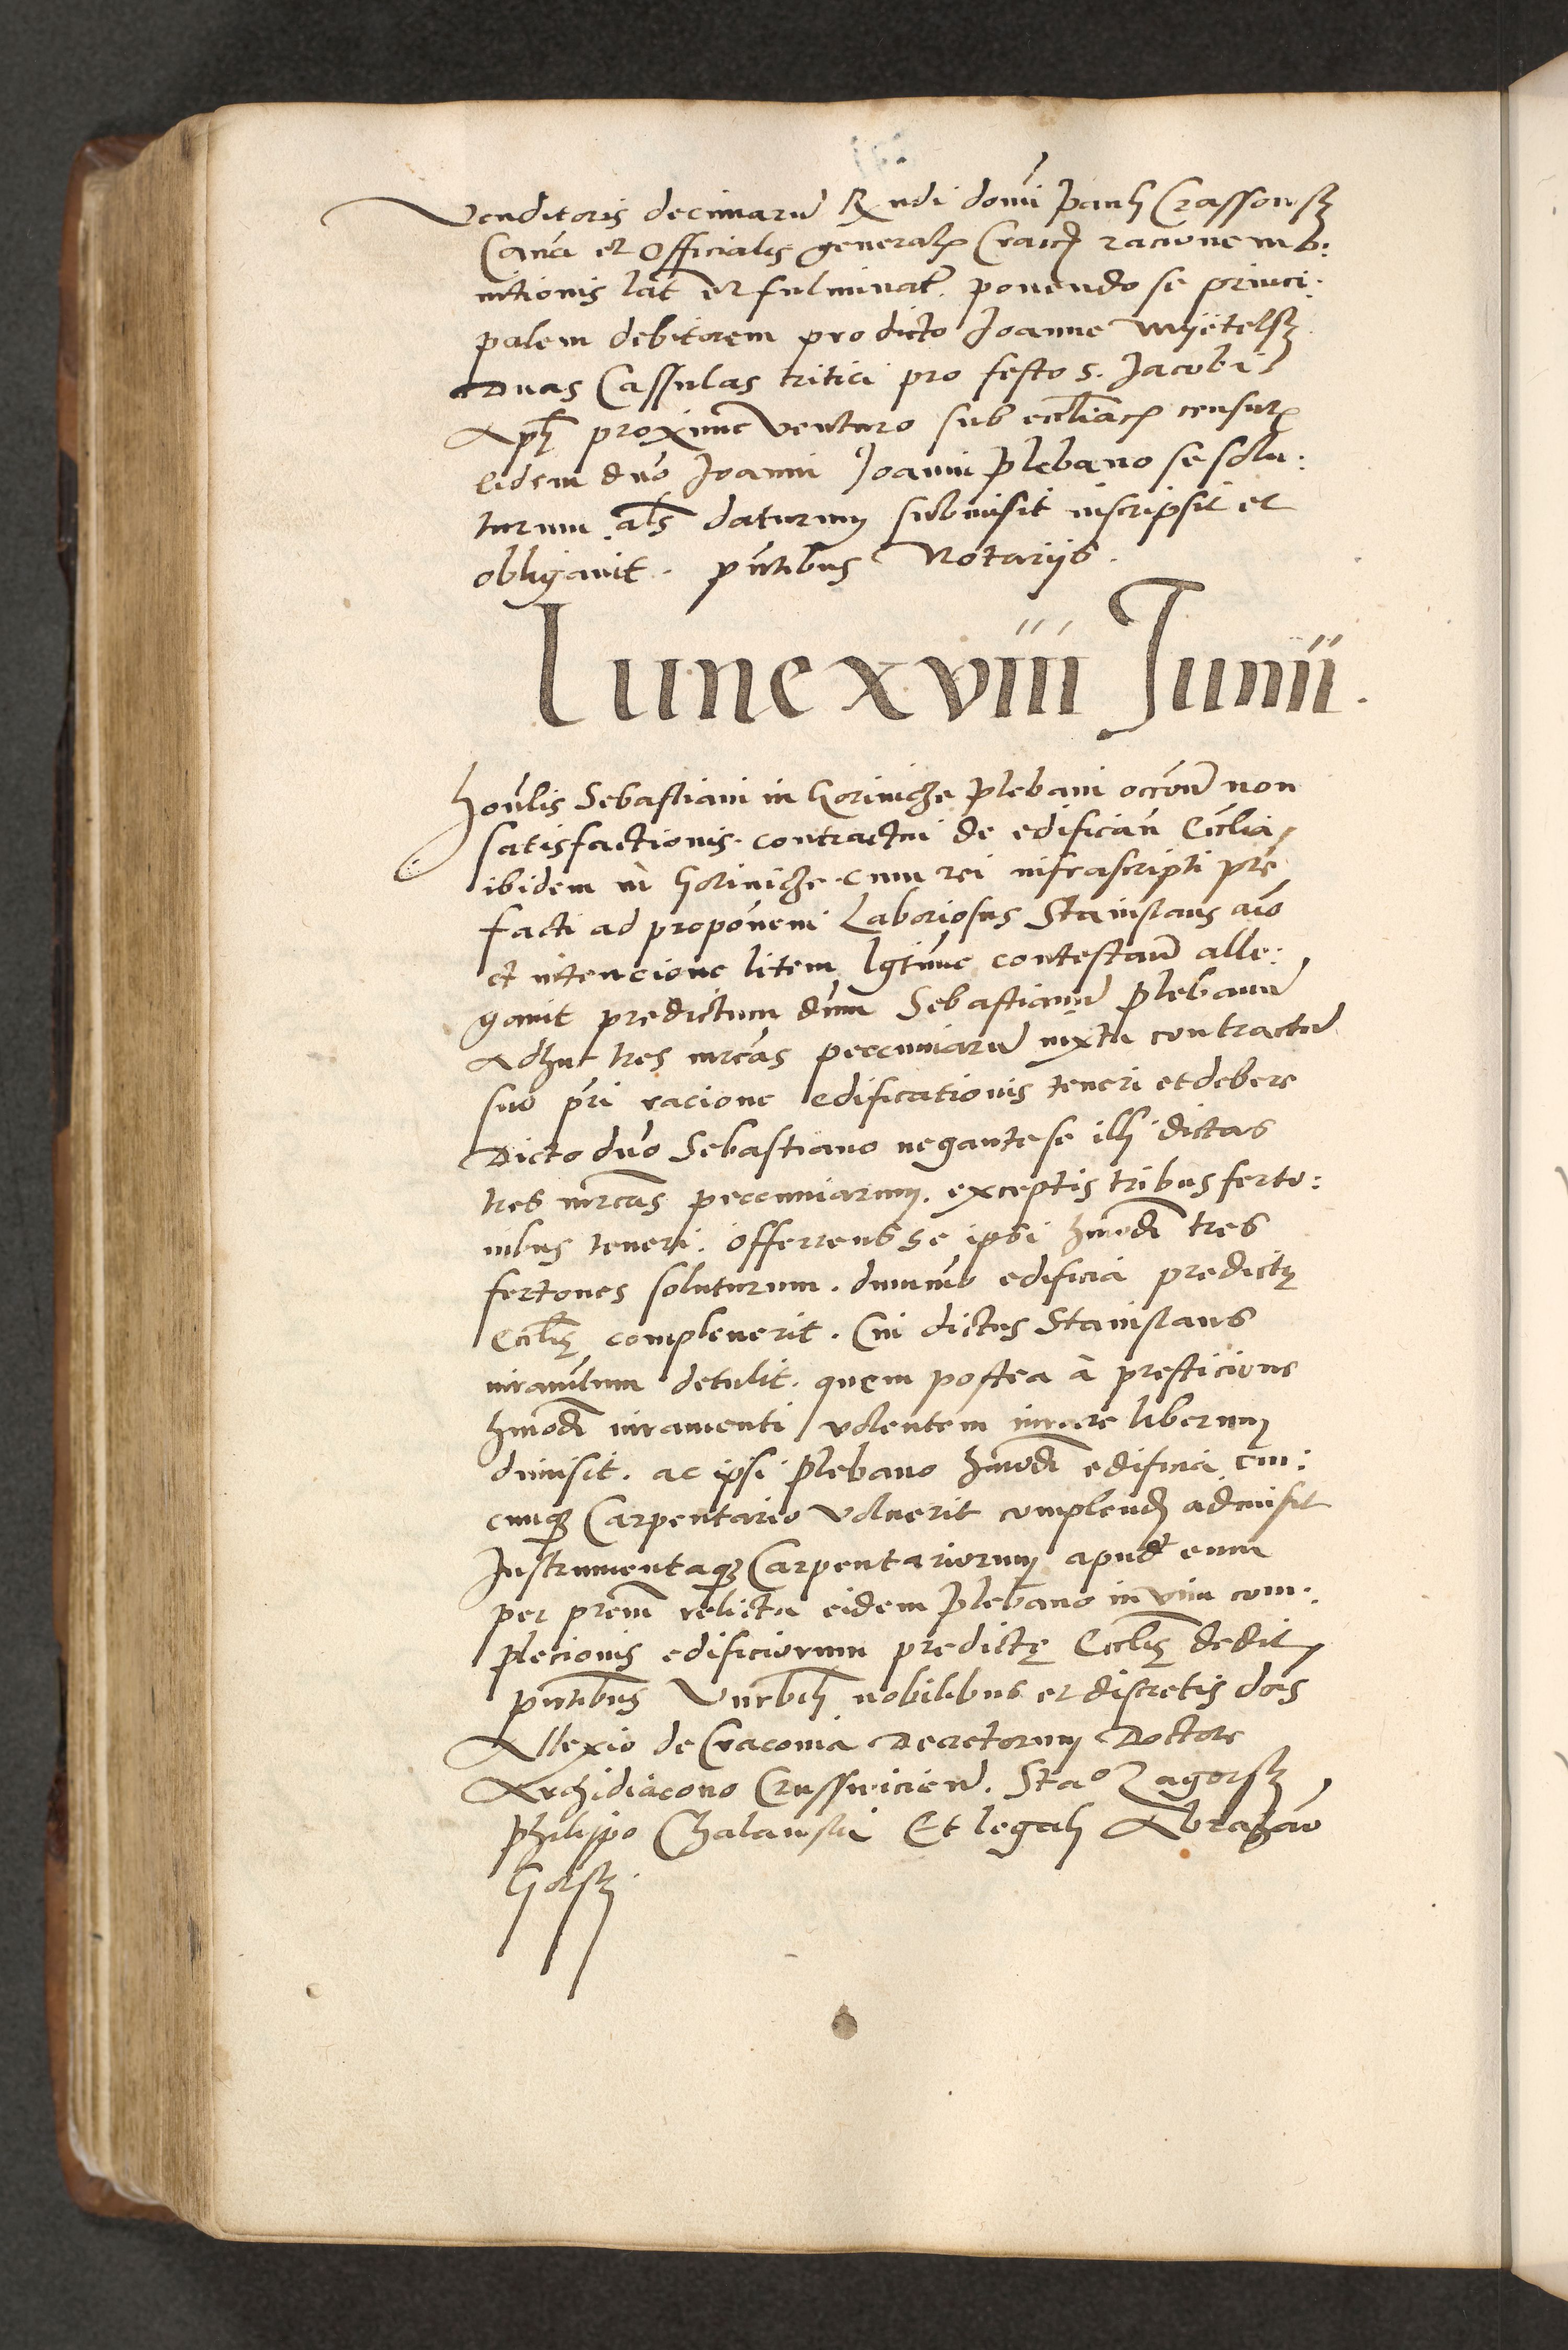 Venditoris decimarū Rndi domī Pauli Crassowsky
Canā et Officialis generaly Craicn racione mo:
nitionis lat et fulminat. ponendo se princi:
palem debitorem pro dicto Joanne Myetelsky
Duas Cassulas tritici pro festo S. Jacobi
Apli proxime venturo sub ecclīacy censury
eidem dno Joanni Joanni Plebano se solu:
turum als daturum submisit inscripsit et
obligauit. pntibus Notarijs.
Lune xviii Junii.
Honlis Sebastiani in Goriniche Plebani occōnē non
satisfactionis contractui de edificān Ecclia
ibidem in Goriniche cum rei infrascripti pre
facti ad proponem Laboriosus Stanislaus aīo
et intencione litem lgtime contestañ alle:
gauit predictum dnm Sebastianū Plebanū
Adhuc tres mrcas peccuniarū iuxta contractū
suo pri racione edificationis teneri et debere
Dicto dno Sebastiano negante se illi dictas
tres mrcas peccuniarum. exceptis tribus ferto:
nibus teneri. offerens se ipsi hmodi tres
fertones soluturum. dummō edificia predictę
Ecclię compleuerit. Cui dictus Stanislaus
iuramtum detulit. quem postea à presticione
hmodi iuramenti volentem iurare liberum
dimisit. ac ipsi Plebano hmodi edificia cui:
cunq Carpentario voluerit complend admisit
Instrumentaq Carpentariorum apud eum
per prem relicta eidem Plebano in vim com:
plecionis edificiorum predictę Ecclię dedit
pntibus Vnrbli nobilibus et discretis dnis
Allexio de Craconia Decretorum Doctore
Archidiacono Crusswicien. Stao Zagorsky
Philippo Chalanski Et legali Abrahāo
Gorsky